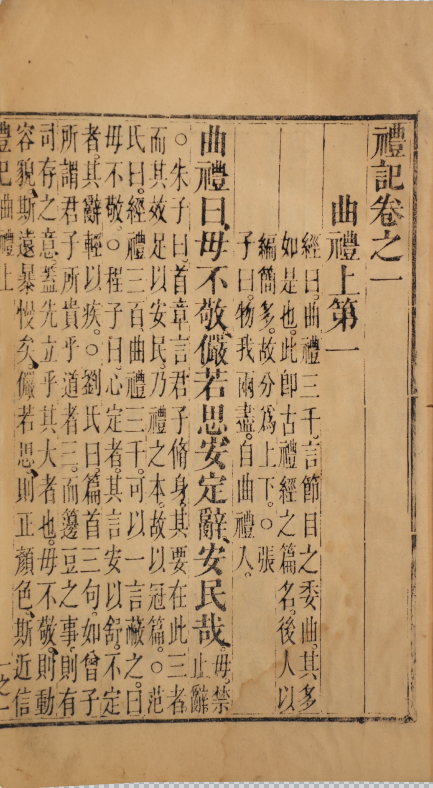 禮記卷之一
曲禮上第一
經曰。曲禮三千。言節目之委曲。其多
如是也。此即古禮經之篇名。後人以
編簡多。故分爲上下。○張
子曰。物我兩盡。自曲禮入。
曲禮曰、毋不敬、儼若思、安定辭、安民哉。毋。禁止辭
○朱子曰。首章言君子脩身。其要在此三者。
而其效足以安民。乃禮之本。故以冠篇。○范
氏曰。經禮三百。曲禮三千。可以一言蔽之。曰
毋不敬。○程子曰。心定者其言安以舒。不定
者。其辭輕以疾。○劉氏曰。篇首三句。如曾子
所謂君子所貴乎道者三。而籩豆之事。則有
司存之意。蓋先立乎其大者也。毋不敬。則動
容貌、斯遠暴慢矣。儼若思、則正顏色、斯近信
禮記曲禮上 一之一